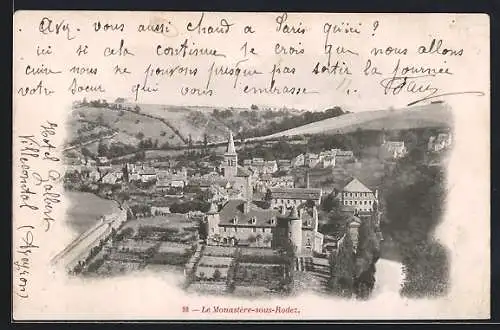 Avez vous aussi chaud a Paris qu'ici ?
ici si cela continue je crois que nous allons
cuire nous ne pouvons presque pas sortir la journée
votre Soeur qui vous embrasse
Hotel Galbert
Villecomtal
(Aveyron)
— Le Monastère-sous-Rodez.